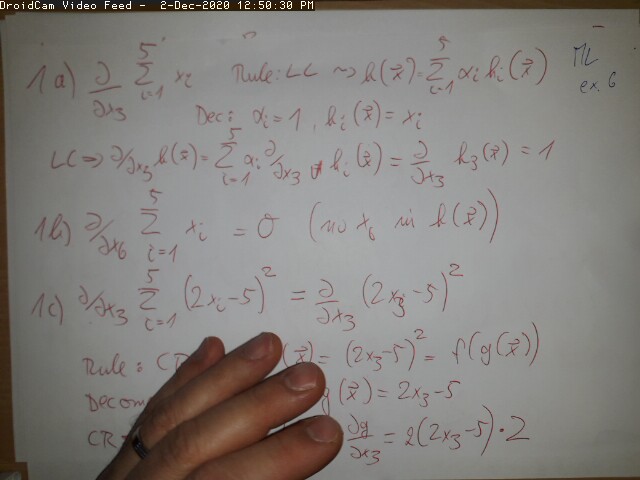 DroidCam Video Feed - 2-Dec-2020 12:50:30 PM
ML
ex. 6
1a) ∂/∂x₃ ∑_{i=1}^{5} x_i Rule: LC ⇝ h(x⃗) = ∑_{i=1}^{5} α_i h_i(x⃗)
Dec: α_i = 1, h_i(x⃗) = x_i
LC ⇒ ∂/∂x₃ h(x⃗) = ∑_{i=1}^{5} α_i ∂/∂x₃ h_i(x⃗) = ∂/∂x₃ h₃(x⃗) = 1
1b) ∂/∂x₆ ∑_{i=1}^{5} x_i = 0 (no x₆ in h(x⃗))
1c) ∂/∂x₃ ∑_{i=1}^{5} (2x_i-5)² = ∂/∂x₃ (2x₃-5)²
Rule: CR (x⃗) = (2x₃-5)² = f(g(x⃗))
Decom g(x⃗) = 2x₃-5
CR ∂g/∂x₃ = 2(2x₃-5)·2